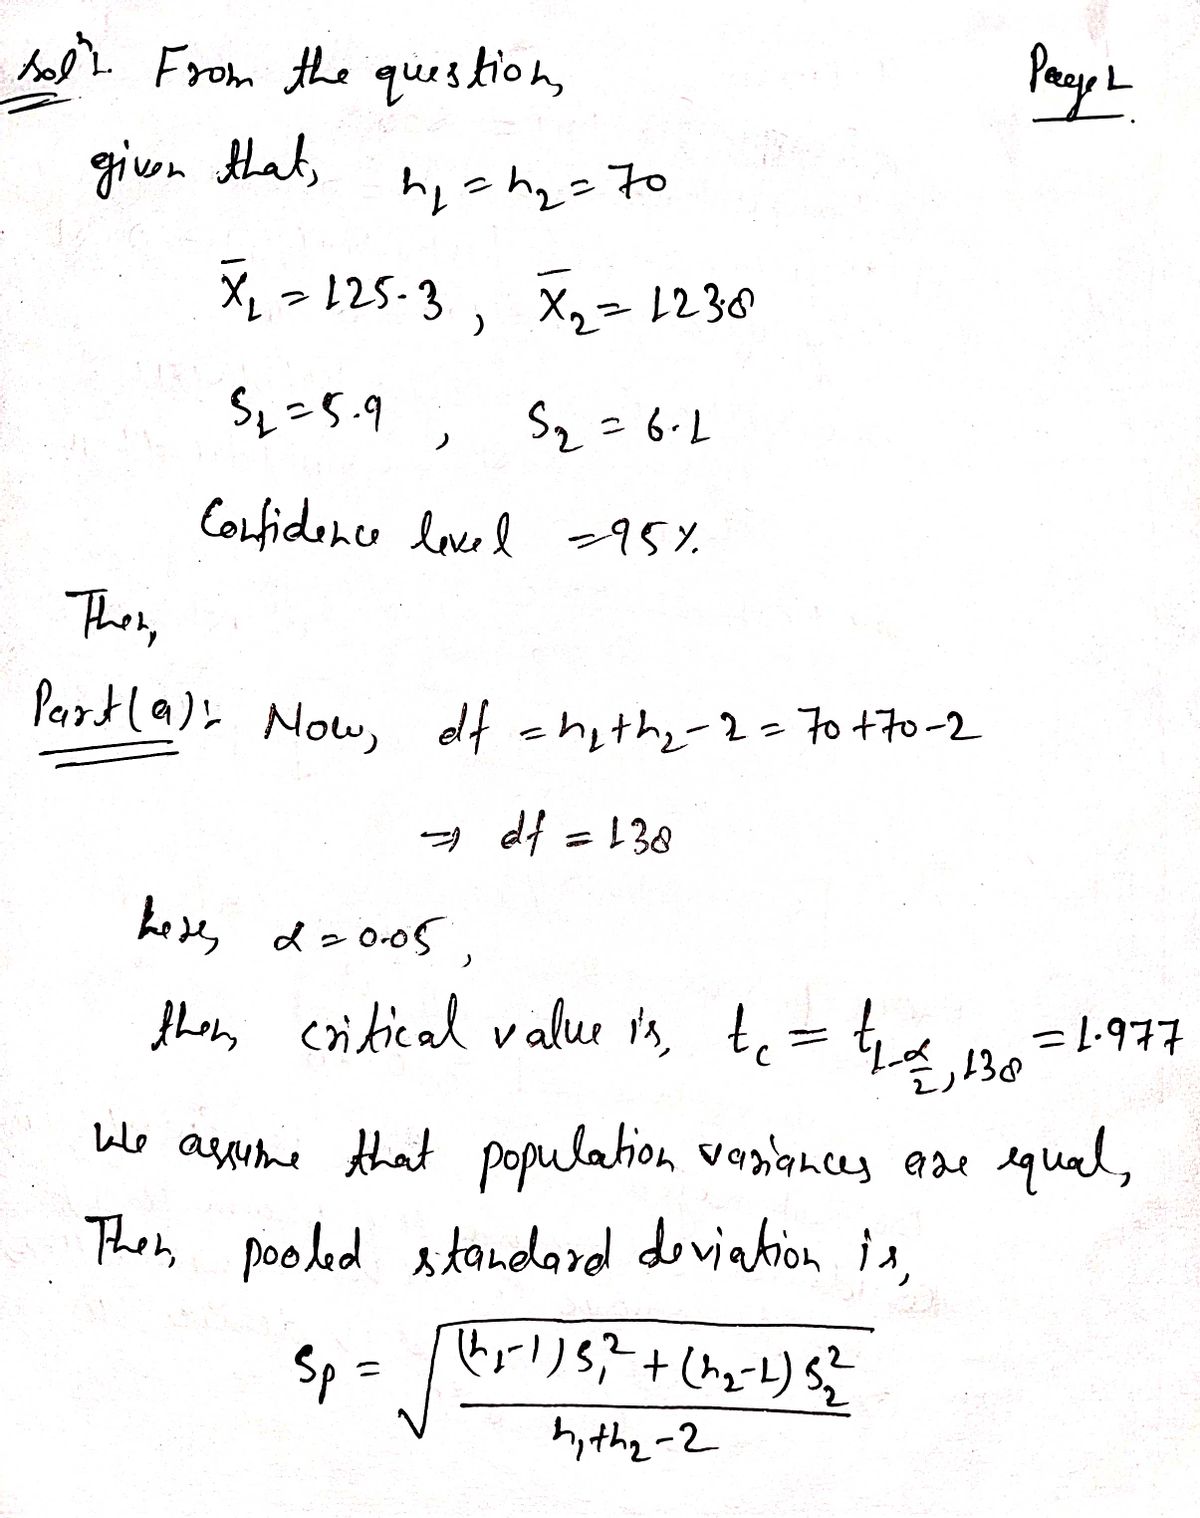 Solⁿ:- From the question,
Page 1
given that, n₁ = n₂ = 70
X̄₁ = 125.3 , X̄₂ = 123.8
S₁ = 5.9 , S₂ = 6.1
Confidence level = 95%.
Then,
Part(a):- Now, df = n₁+n₂-2 = 70+70-2
⇒ df = 138
here, α = 0.05 ,
then, critical value is, t_c = t_{1-α/2, 138} = 1.977
We assume that population variances are equal,
Then, pooled standard deviation is,
Sp = √((n₁-1)S₁² + (n₂-1)S₂² / n₁+n₂-2)